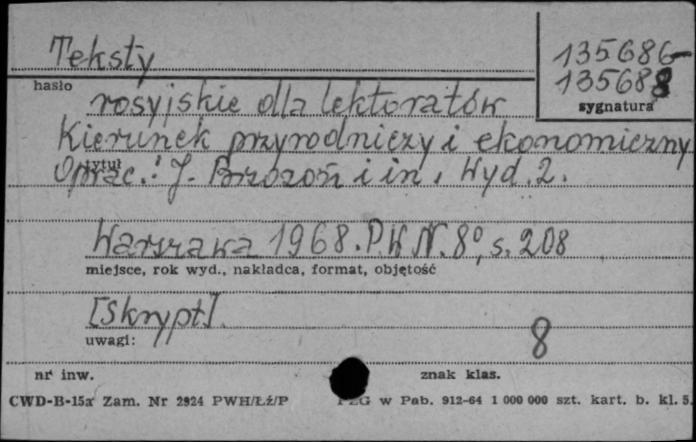 Teksty
135686-
135688
hasło
sygnatura
rosyjskie dla lektoratów
Kierunek przyrodniczy i ekonomiczny
tytuł
Oprac.: J. Brzozoń i in. Wyd. 2.
Warszawa 1968. P.W.N. 8°, s. 208
miejsce, rok wyd., nakładca, format, objętość
[Skrypt].
uwagi:
8
nr inw.
znak klas.
CWD-B-15a Zam. Nr 2924 PWH/Łź/P
PZG w Pab. 912-64 1 000 000 szt. kart. b. kl. 5.